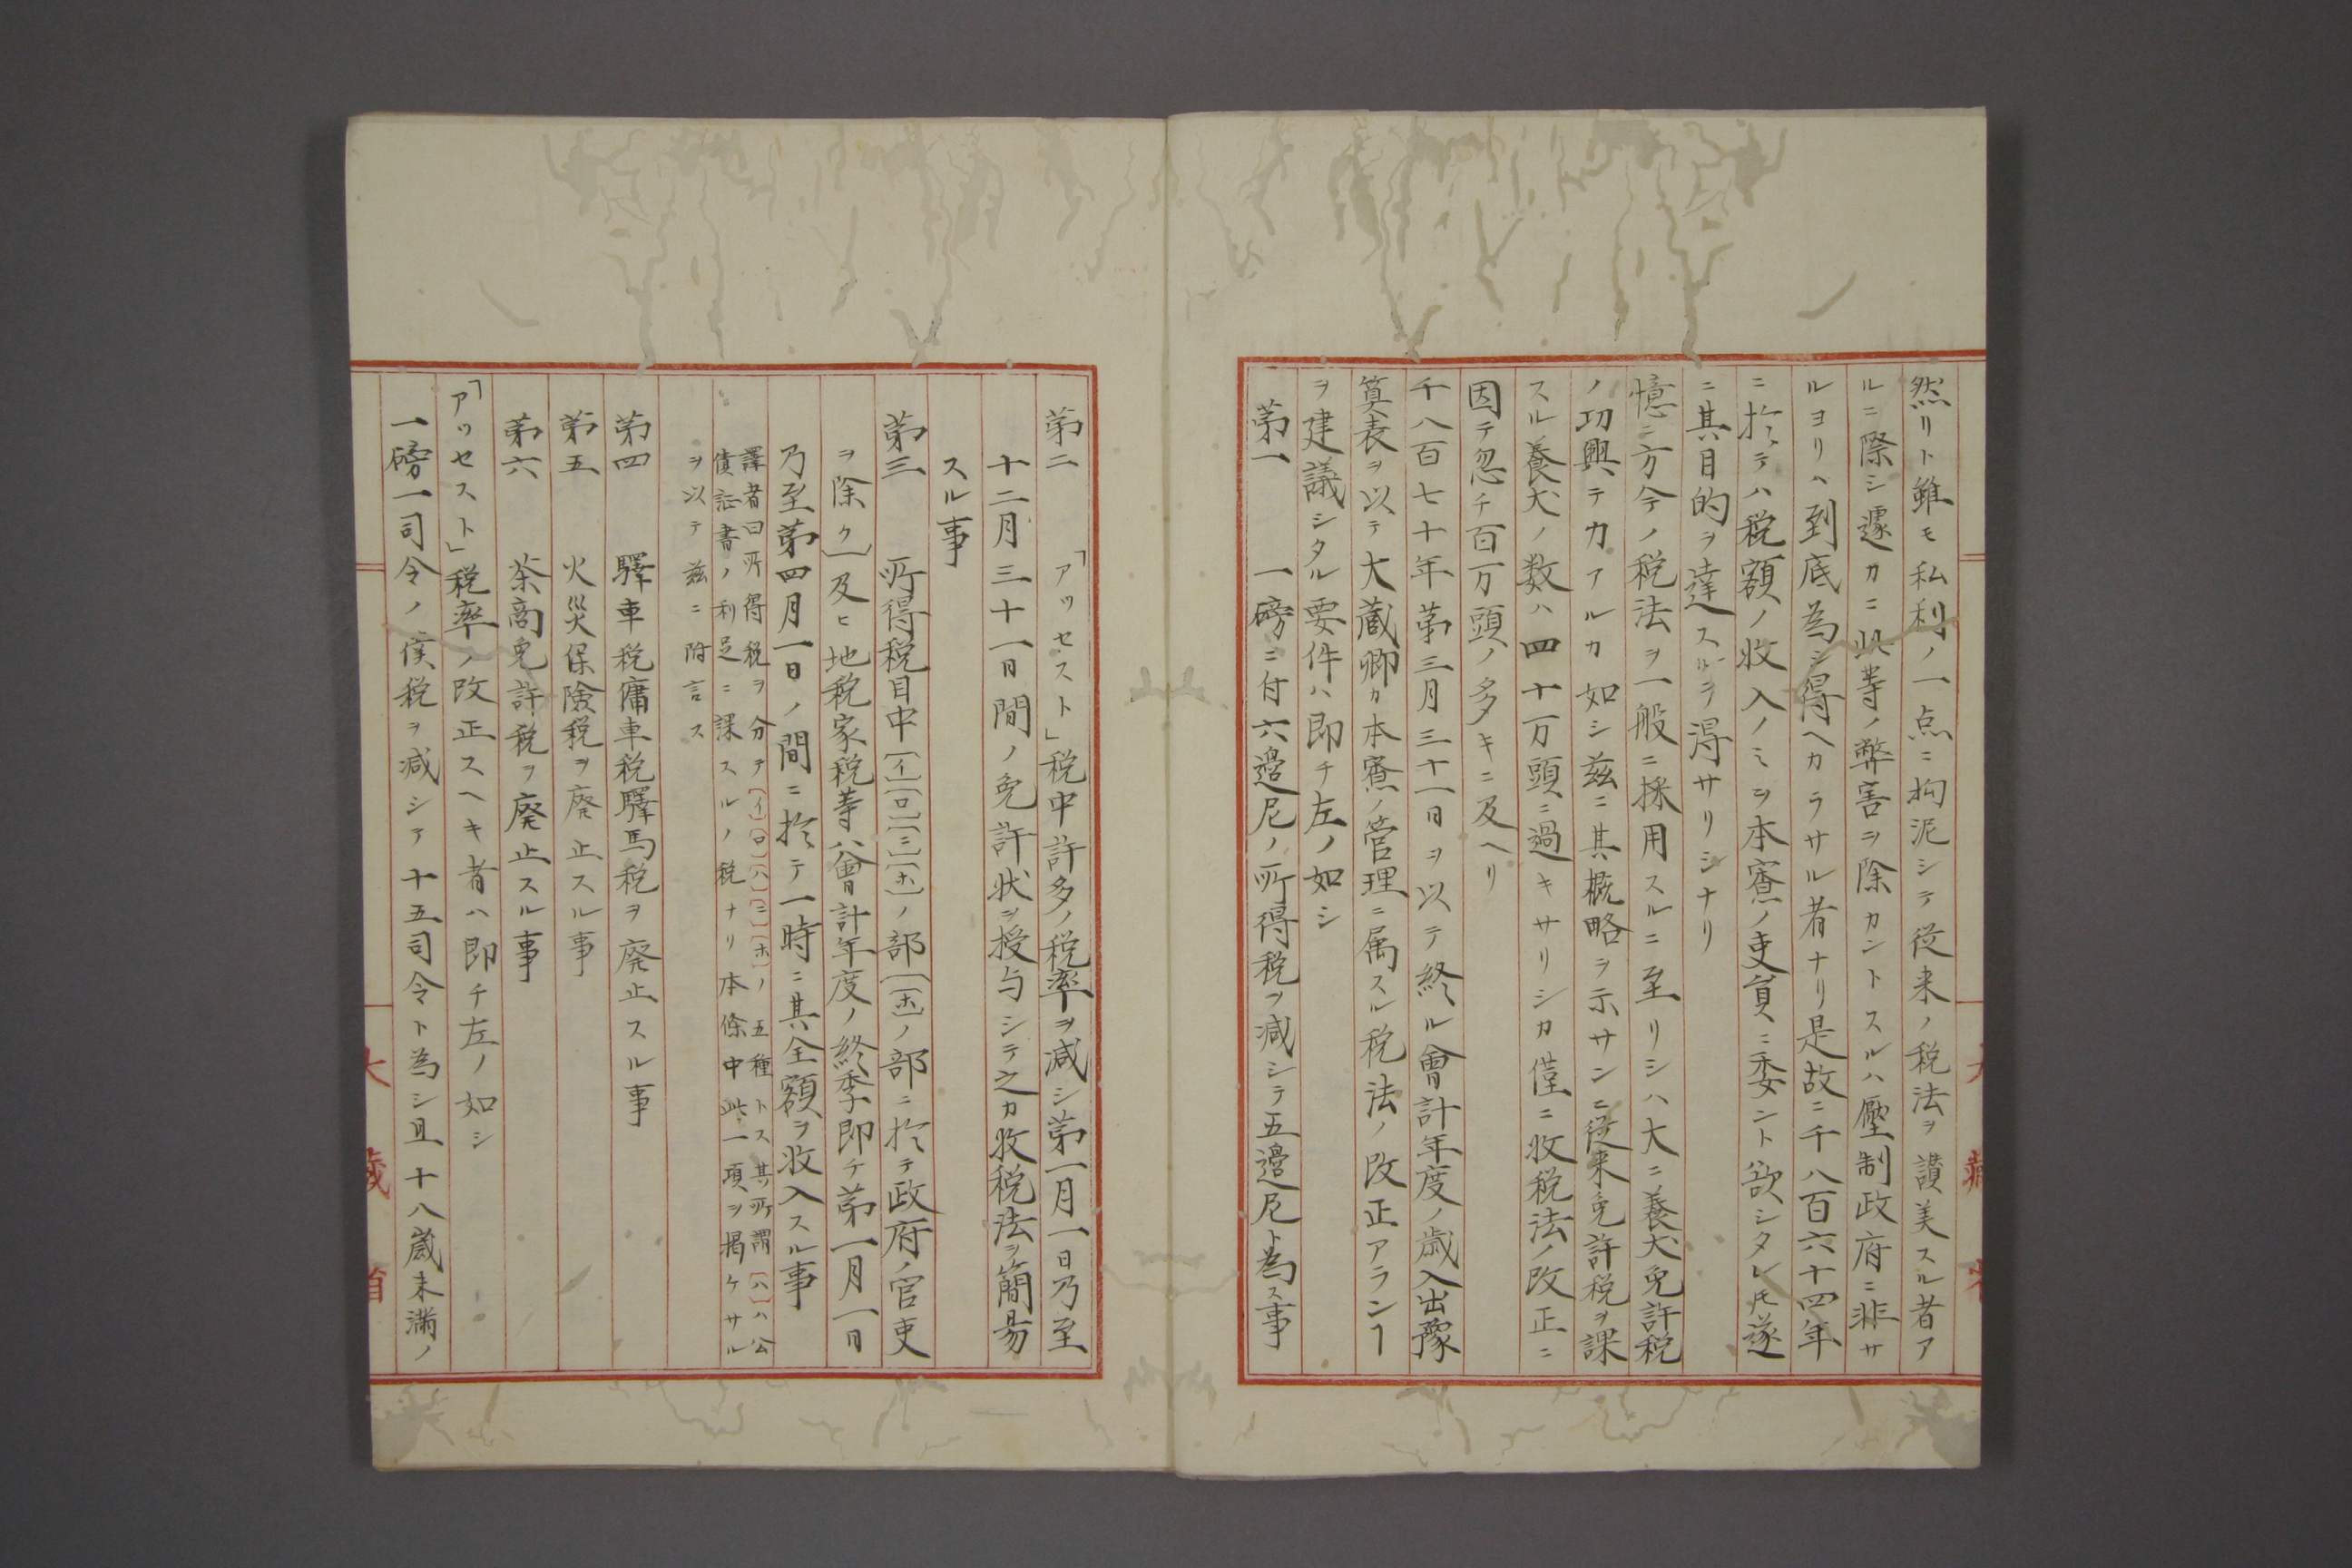 然リト雖モ私利ノ一点ニ拘泥シテ従来ノ税法ヲ讃美スル者ア
ルニ際シ遽カニ此等ノ弊害ヲ除カントスルハ壓制政府ニ非サ
ルヨリハ到底為シ得ヘカラサル者ナリ是故ニ千八百六十四年
ニ於テハ税額ノ收入ノミヲ本寮ノ吏員ニ委ント欲シタレ𪜈遂
ニ其目的ヲ達スルヲ得サリシナリ
憶ニ方今ノ税法ヲ一般ニ採用スルニ至リシハ大ニ養犬免許税
ノ功與テ力アルカ如シ茲ニ其概略ヲ示サンニ従来免許税ヲ課
スル養犬ノ数ハ四十万頭ニ過キサリシカ僅ニ收税法ノ改正ニ
因テ忽チ百万頭ノ多キニ及ヘリ
千八百七十年第三月三十一日ヲ以テ終ル會計年度ノ歳入出豫
算表ヲ以テ大蔵卿カ本寮ノ管理ニ属スル税法ノ改正アランヿ
ヲ建議シタル要件ハ即チ左ノ如シ
第一　一磅ニ付六邉尼ノ所得税ヲ減シテ五邉尼ト為ス事
第二　「アッセスト」税中許多ノ税率ヲ減シ第一月一日乃至
十二月三十一日間ノ免許状ヲ授与シテ之カ收税法ヲ簡易
スル事
第三　所得税目中〔イ〕〔ロ〕〔ニ〕〔ホ〕ノ部〔〔ホ〕ノ部ニ於テ政府ノ官吏
ヲ除ク〕及ヒ地税家税等ハ會計年度ノ終季即チ第一月一日
乃至第四月一日ノ間ニ於テ一時ニ其全額ヲ收入スル事
譯者曰所得税ヲ分ア〔イ〕〔ロ〕〔ハ〕〔ニ〕〔ホ〕ノ五種トス其所謂〔ハ〕ハ公
債証書ノ利足ニ課スルノ税ナリ本條中此一項ヲ掲ケサル
ヲ以テ茲ニ附言ス
第四　驛車税傭車税驛馬税ヲ廃止スル事
第五　火災保険税ヲ廃止スル事
第六　茶商免許税ヲ廃止スル事
「アッセスト」税率ノ改正スヘキ者ハ即チ左ノ如シ
一磅一司令ノ僕税ヲ減シア十五司令ト為シ且十八歳未満ノ
大蔵省